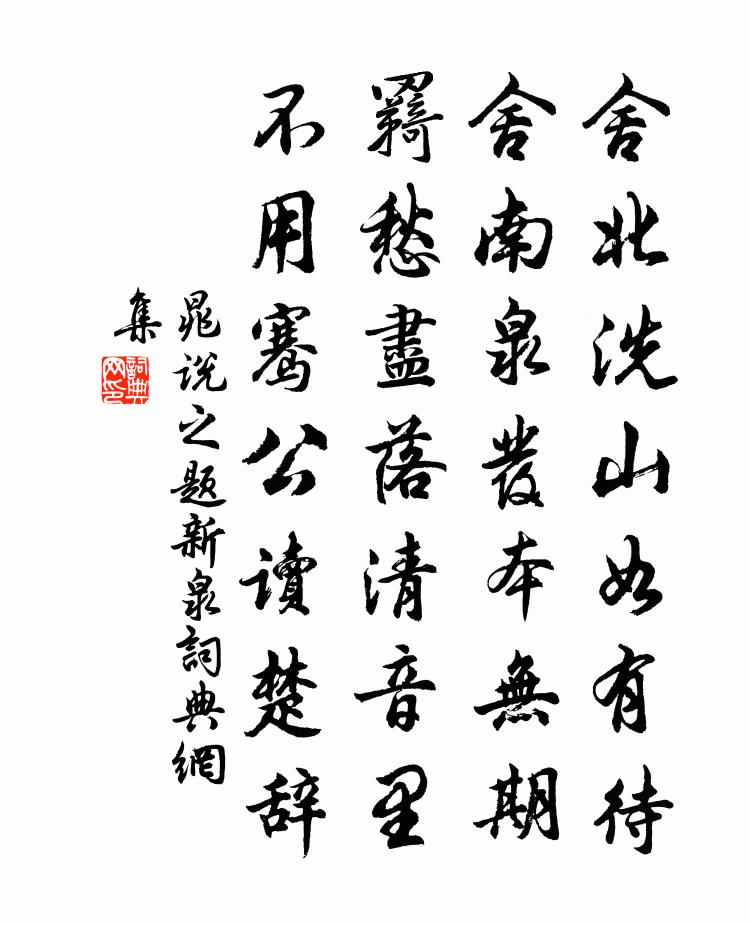 舍北洗山如有待
舍南泉發本無期
羈愁盡落清音里
不用騫公讀楚辞
晁说之题新泉詞典網
集
詞典
网印